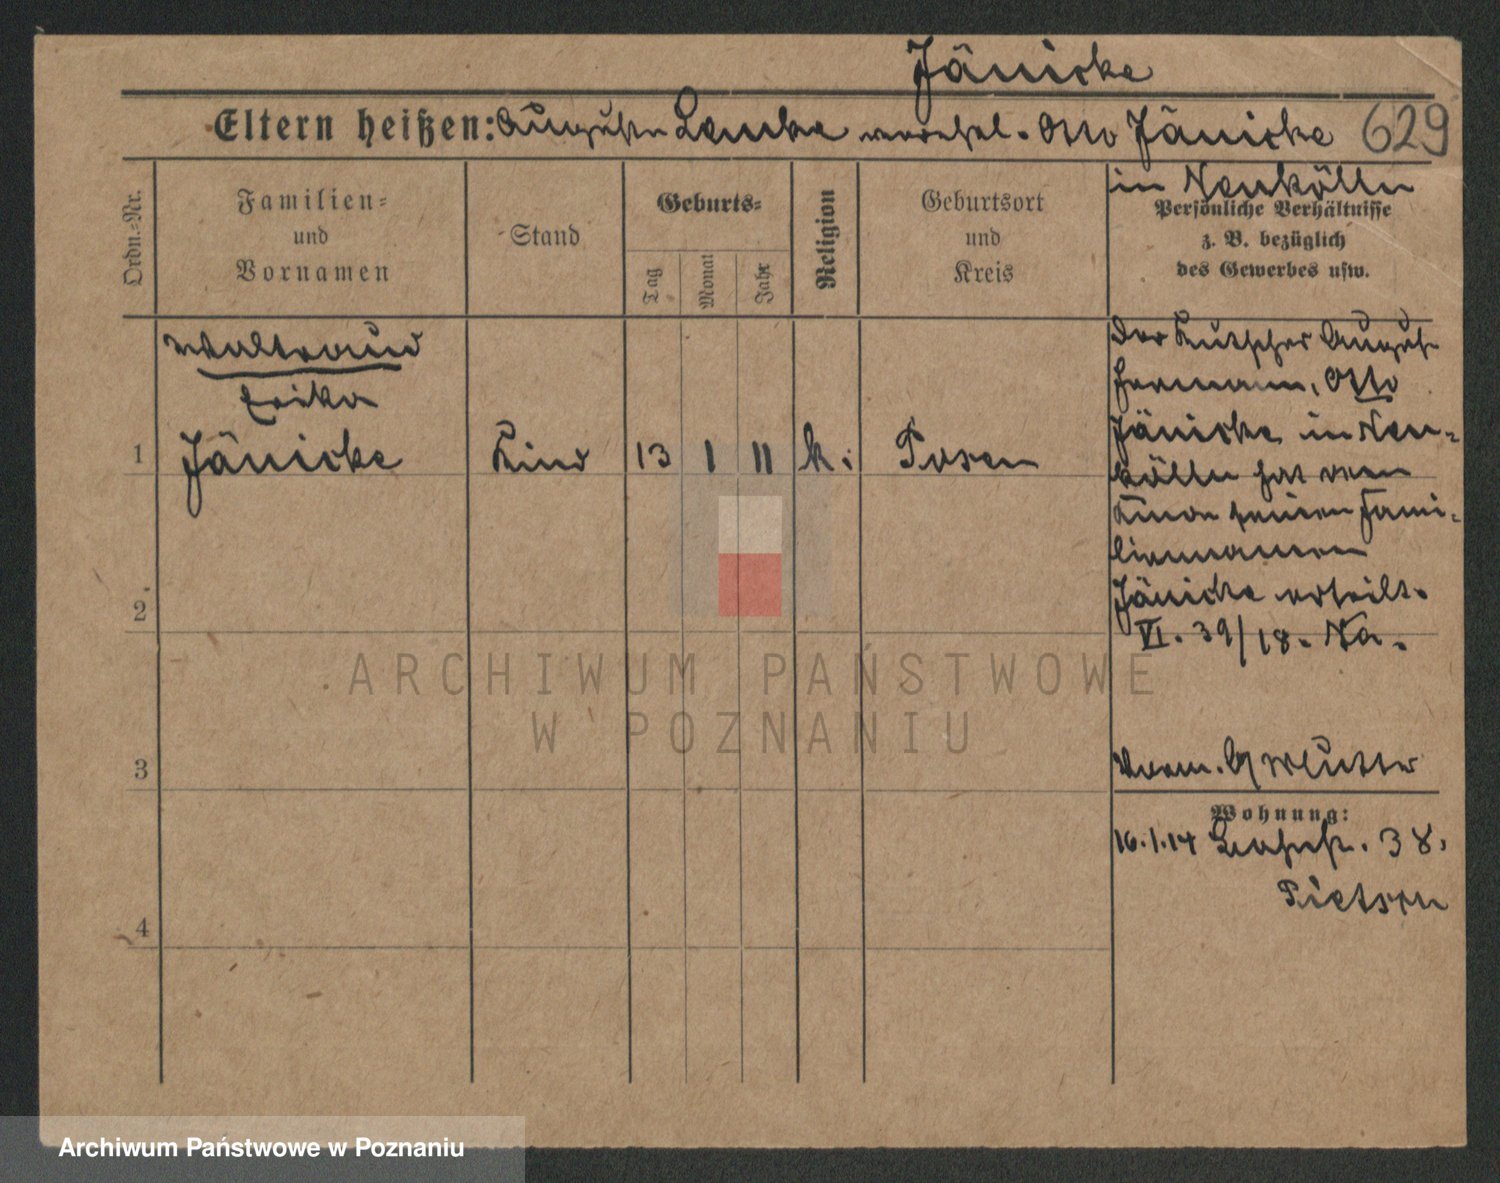 Jänicke
Eltern heißen: Auguste Lemke verehel. Otto Jänicke 629
in Neukölln
Ordn.=Nr.
Familien=
und
Vornamen
Stand
Geburts=
Tag
Monat
Jahr
Religion
Geburtsort
und
Kreis
Persönliche Verhältnisse
z. B. bezüglich
des Gewerbes usw.
Waltraud
Erika
1 Jänicke Kind 13 1 11 k. Posen
Der Kutscher August
Hermann, Otto
Jänicke in Neu-
kölln hat dem
Kinde seinen Fami-
liennamen
Jänicke erteilt.
VI. 39/18. Na.
2
3
4
Vorm. Mutter
Wohnung:
16.1.14 38.
ARCHIWUM PAŃSTWOWE
W POZNANIU
Archiwum Państwowe w Poznaniu